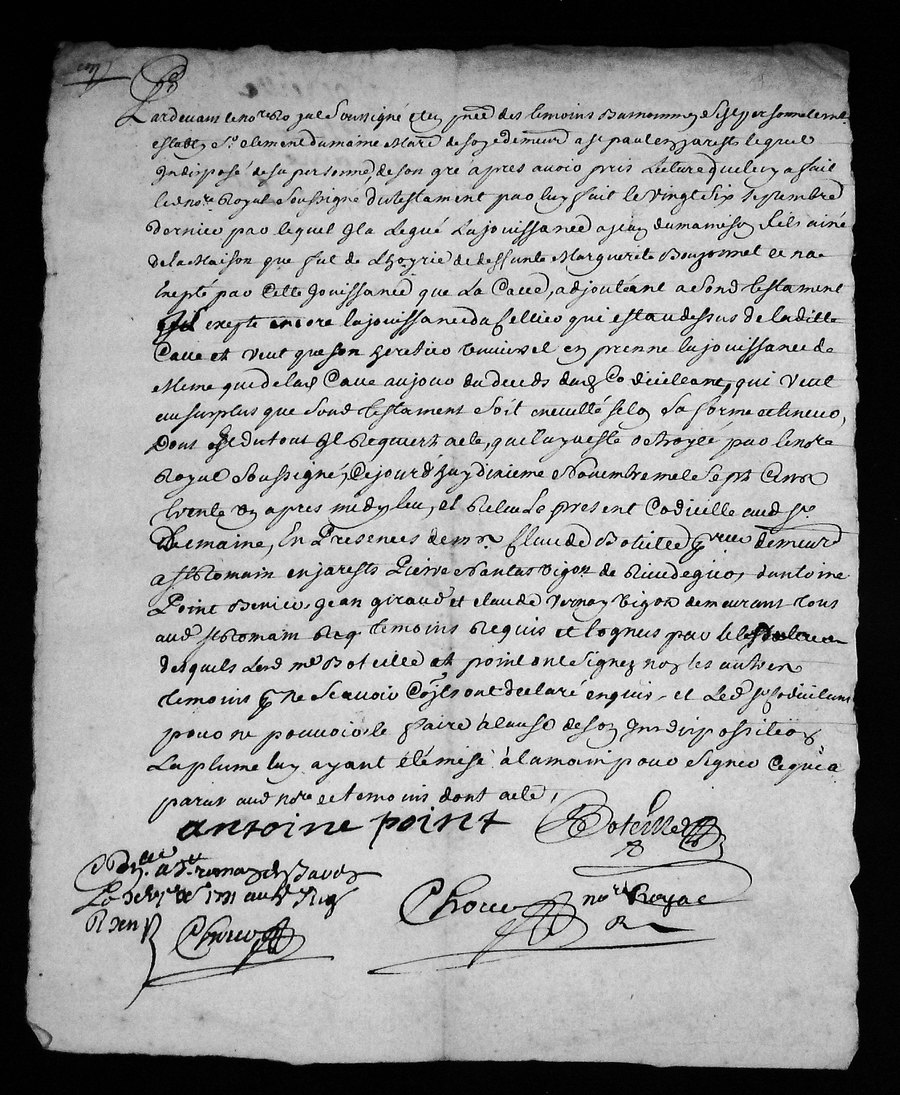 Pardevant le no.re Royal Soussigné et en p.nce des temoins
establi s.r Clement dumaine de demeurt a st paul en jarests lequel
Indisposé de sa personne de son gré apres avoir pris Lecture que luy a fait
le d no.re Royal Soussigné du testament par luy fait le vingt Six septembre
dernier par lequel Il a Legué La jouissance a jean dumaine son fils ainé
de la Maison que fut de deffunte Marguerite Boujonnet et na
Excepté par Cette Jouissance que La Cave, adjoutant a son d testament
Il exepte encore la jouissance du Cellier qui est au dessus de la ditte
Cave et veut que son heretier universel en prenne la jouissance de
Meme que de lad Cave au jour du deceds dud Codicillant, qui veut
au surplus que son d Testament soit executté selon Sa forme et teneur,
Dont et du tout Il Requiert acte, que luy a esté octroyé par le no.re
Royal Soussigné, Cejourd'huy dixieme Novembre mil Sept Cent
trente un apres midy, leu, et Releu Le present Codicille aud s.r
Dumaine, En Presences de m.r Claude Boteille demeurt
a st Romain en jarests Pierre Nantas vigon de Rivedegier, d'antoine
Point jean giraud et claude vernay vigon demeurant tous
aud st Romain temoins Requis et Cognus par
desquels Led m.r Boteille et point ont Signez non les autres
temoins p.r ne Scavoir Co'ils ont declaré enquis, et Led s.r Codicilant
pour ne pouvoir le faire a Cause de son Indisposition
La plume luy ayant été mise à la main pour Signer Ce qui a
parut aud no.re et temoins dont acte,
antoine point Boteille
a st romain
Le 1731
Choue no.re Royal
Choue